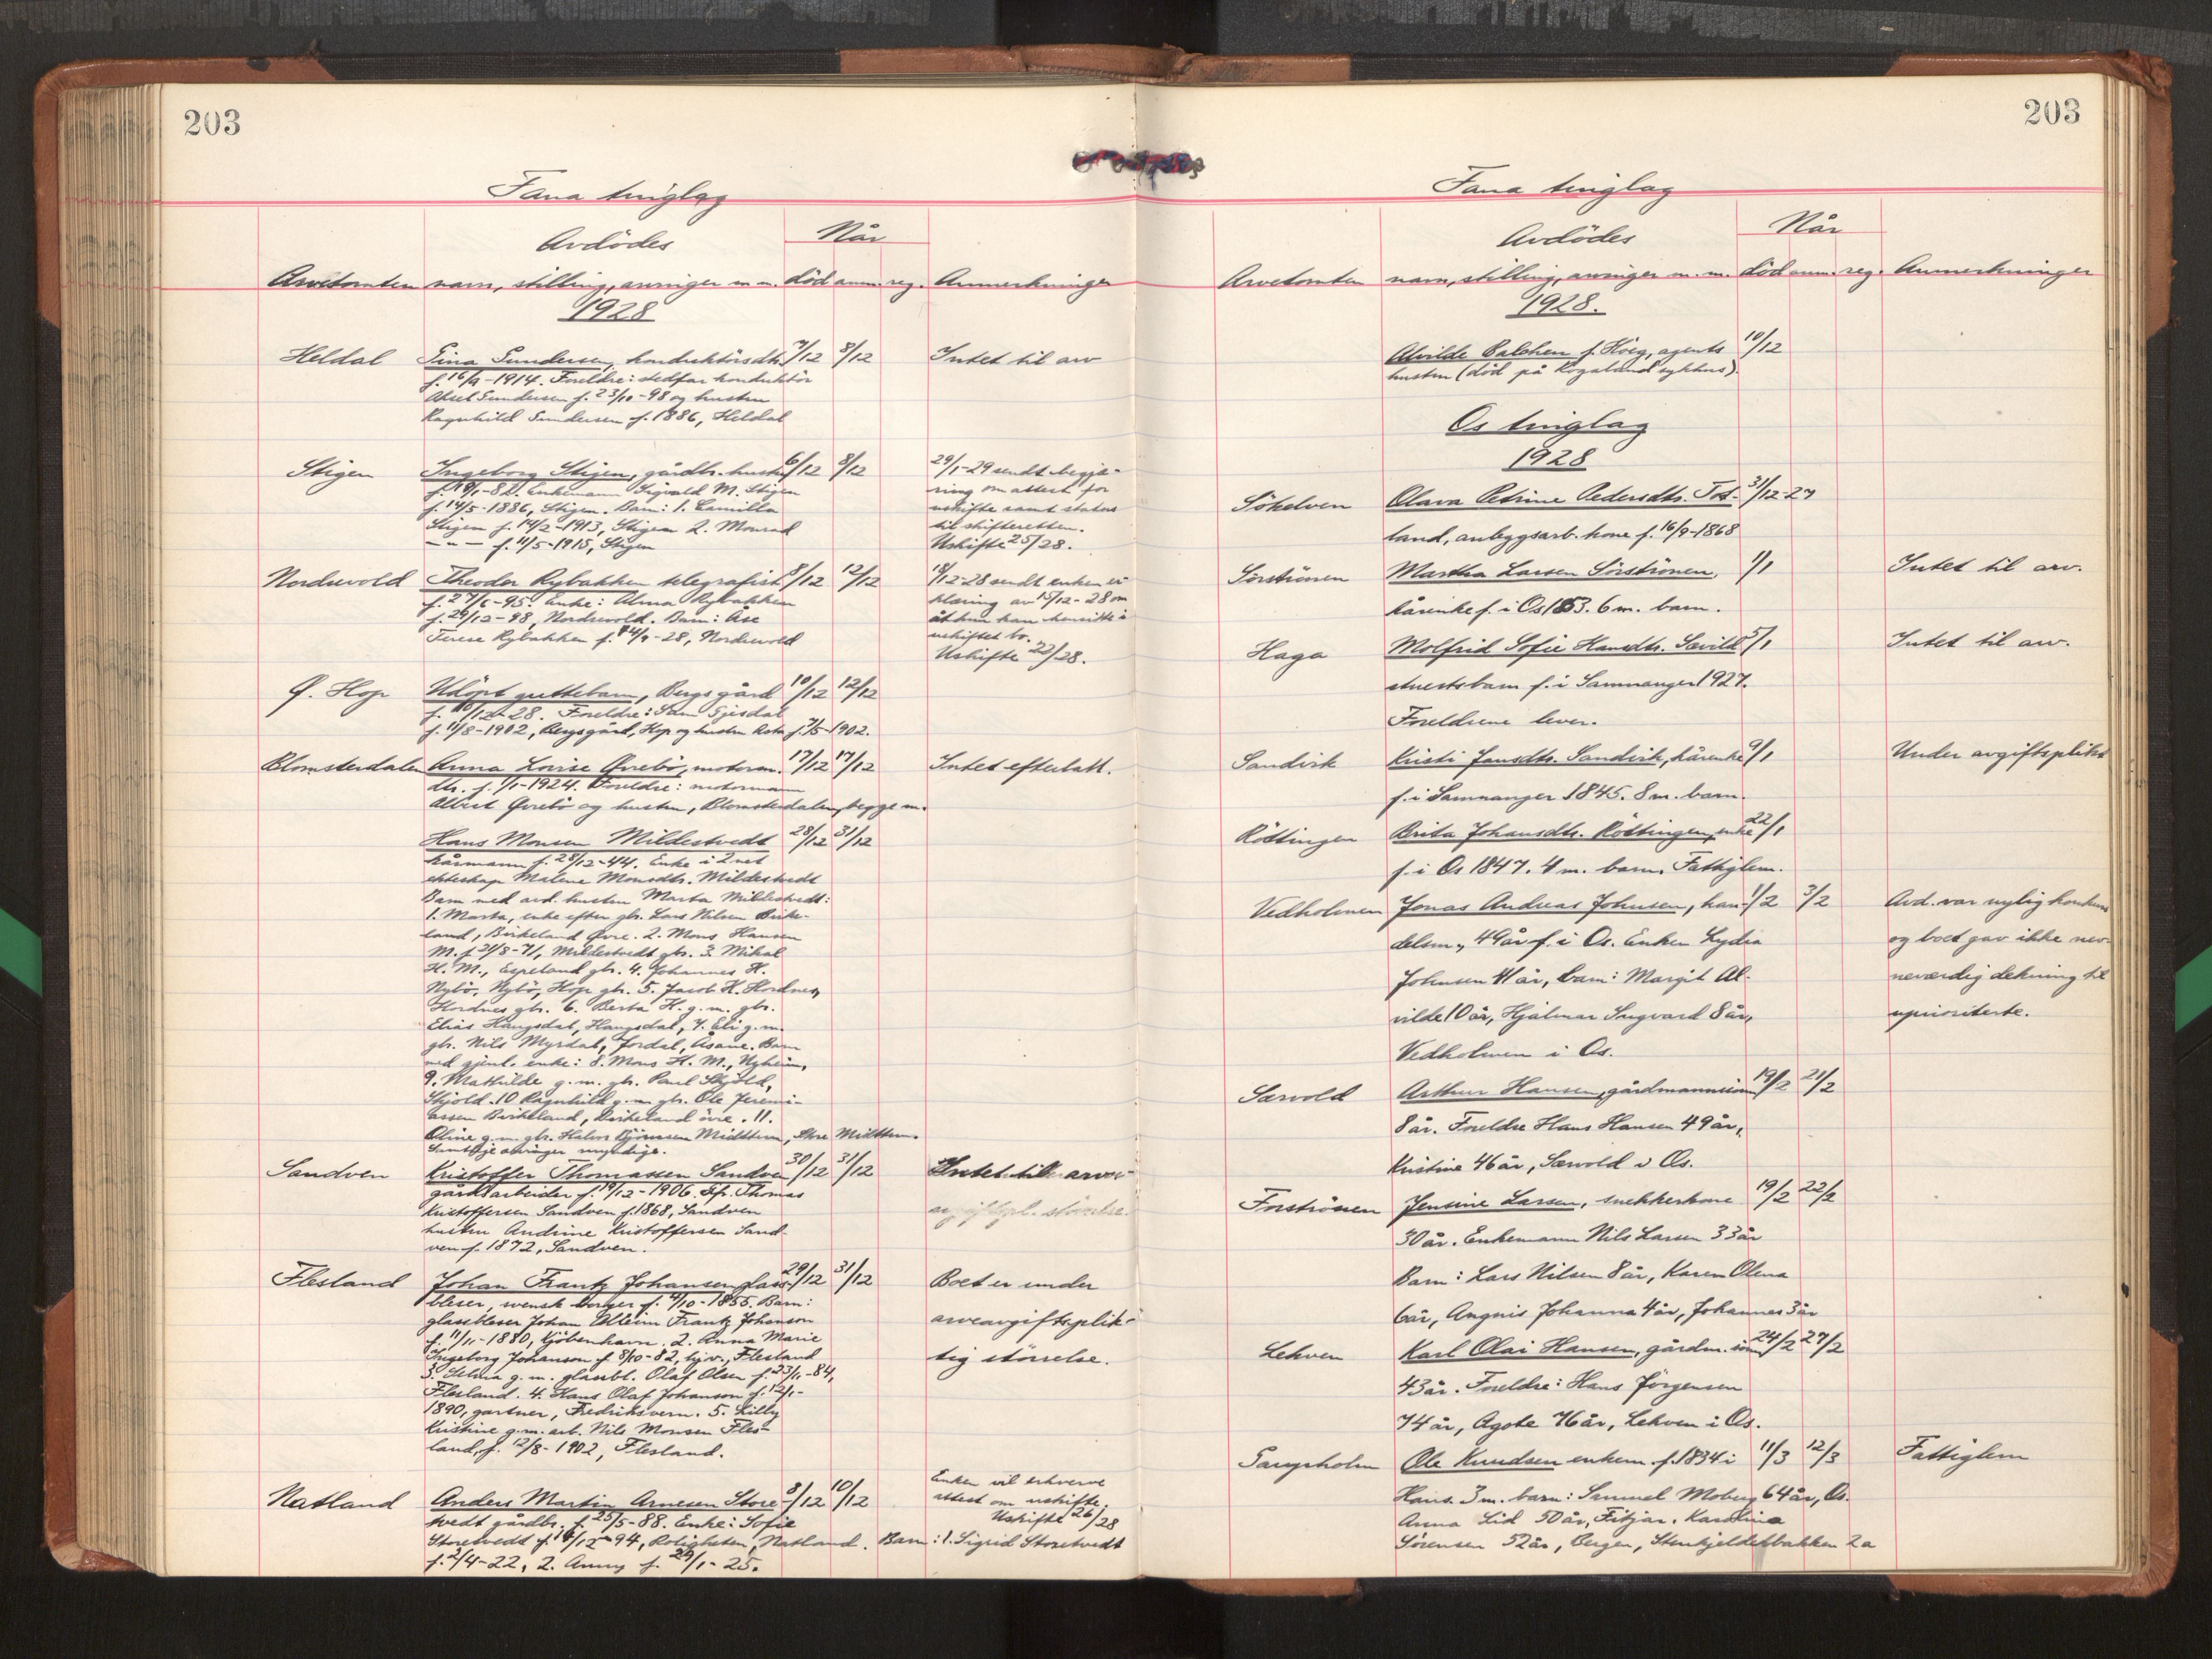 203
Fana tinglag
Avdödes
Når
Arvetomten navn, stilling, arvinger m.m. död anm. reg. Anmerkninger
1928
Heldal Gundersen, konduktörsdtr. 7/12 8/12 Intet til arv
f. 16/9-1914. Foreldre: stedfar konduktör
Aksel Gundersen f. 23/10-98 og hustru
Ragnhild Gundersen f. 1886, Heldal
Stigen Ingeborg Stigen, gårdbr. hustru 6/12 8/12 29/1-29 sendt begjæ-
f. 19/1-82. Enkemann Sigvald M. Stigen ring om attest for
f. 14/5-1886, Stigen. Barn: 1. Camilla uskifte samt status
Stigen f. 14/2-1913, Stigen 2. Monrad til skifteretten.
— " — f. 11/5-1915, Stigen Uskifte 25/28.
Nordvold Theodor Rybakken telegrafist 8/12 12/12 18/12-28 sendt enken er-
f. 27/6-95. Enke: Alma Rybakken klæring av 15/12-28 om
f. 29/12-98, Nordvold. Barn: Åse at hun kan hensitte i
Terese Rybakken f. 24/9-28, Nordvold uskiftet bo.
Uskifte 22/28.
Ø. Hop Udöpt guttebarn, Bergs gård 10/12 12/12
f. 10/12-28. Foreldre: Sam Gjesdal
f. 11/8-1902, Bergsgård, Hop og hustru f. 7/5-1902.
Blomsterdalen Anna Lovise Övrebö, motorm. 17/12 17/12 Intet efterlatt.
dtr. f. 1/1-1924. Foreldre: motormann
Albert Övrebö og hustru, Blomsterdalen, begge m.
Hans Monsen Mildestvedt 28/12 31/12
kårmann f. 28/12-44. Enke i 2net
ekteskap Malene Monsdtr. Mildestvedt
Barn med avd. hustru Marta Mildestvedt:
1. Marta, enke efter gbr. Lars Nilsen Birke-
land, Birkeland Övre. 2. Mons Hansen
M. f. 21/8-71, Mildestvedt gbr. 3. Mikal
H. M., Espeland gbr. 4. Johannes H.
Nybö, Nybö, Hop gbr. 5. Jacob H. Hordnes,
Hordnes gbr. 6. Berta H. g. m. gbr.
Elias Haugsdal, Haugsdal, 7. Eli g. m.
gbr. Nils Myrdal, Jordal, Åsane. Barn
med gjenl. enke: 8. Mons H. M., Nyheim,
9. Mathilde g. m. gbr. Paul Skjold,
Skjold. 10 Ragnhild g. m. gbr. Ole Jeremi-
assen Birkeland, Birkeland övre. 11.
Oline g. m. gbr. Halvor Björnsen Midttun, Store Midttun.
Samtlige arvinger myndige.
Sandven Kristoffer Thomassen Sandven 30/12 31/12 Intet til arv
gårdsarbeider f. 19/12-1906. Thomas
Kristoffersen Sandven f. 1868, Sandven
hustru Andrine Kristoffersen Sand-
ven f. 1872, Sandven.
Flesland Johan Frantz Johansen glass- 29/12 31/12 Boet er under
bleser, svensk borger f. 4/10-1855. Barn:
glassbleser Johan Frantz Johanson arveavgiftsplik-
f. 11/11-1880, Kjöbenhavn. 2. Anna Marie
Ingeborg Johanson f. 8/10-82, hjv., Flesland tig störrelse.
3. Selma g. m. glassbl. Olaf Olsen f. 23/1-84,
Flesland. 4. Hans Olaf Johanson f. 12/1-
1890, gartner, Fredriksvern. 5. Lilly
Kristine g. m. arb. Nils Monsen Fles-
land, f. 12/8-1902, Flesland.
Natland Anders Martin Arnesen Store- 8/12 10/12 Enken vil erhverve
tvedt gårdbr. f. 25/5-88. Enke: Sofie attest om uskifte.
Uskifte 26/28
Storetvedt f. 14/12-94, Roligheten, Natland. Barn: 1. Sigrid Storetvedt
f. 2/4-22, 2. Anny f. 29/1-25.
203
Fana tinglag
Avdödes
Når
Arvetomten navn, stilling, arvinger m.m. död anm. reg. Anmerkninger
1928.
Alvilde Balchen f. Höeg, agents 10/12
hustru (död på Rogaland sykhus).
Os tinglag
1928
Sökelven Olava Petrine Pedersdtr. Tot- 31/12-27
land, anleggsarb. kone f. 16/9-1868
Sörströnen Martha Larsen Sörströnen, 1/1 Intet til arv.
kårenke f. i Os 1853. 6 m. barn.
Haga Molfrid Sofie Hansdtr. Sævild 5/1 Intet til arv.
barn f. i Samnanger 1927.
Foreldrene lever.
Sandvik Kristi Jansdtr. Sandvik, kårenke 9/1 Under avgiftsplikt
f. i Samnanger 1845. 8 m. barn.
Röttingen Brita Johansdtr. Röttingen, enke 22/1
f. i Os 1847. 4 m. barn. Fattiglem.
Vedholmen Jonas Andreas Johnsen, han- 1/2 3/2 Avd. var nylig konkurs
delsm., 49 år f. i Os. Enken Lydia og boet gav ikke nev-
Johnsen 41 år, barn: Margit Al- neverdig dekning til
vilde 10 år, Hjalmar Ingvard 8 år, uprioriterte.
Vedholmen i Os.
Særvold Arthur Hansen, gårdmannssönn 19/2 21/2
8 år. Foreldre Hans Hansen 49 år,
Kristine 46 år, Særvold i Os.
Forströnen Jensine Larsen, snekkerkone 19/2 22/2
30 år. Enkemann Nils Larsen 33 år
Barn: Lars Nilsen 8 år, Karen Olena
6 år, Angnis Johanna 4 år, Johannes 3 år
Lekven Karl Olai Hansen, gårdm. sönn 24/2 27/2
43 år. Foreldre: Hans Jörgensen
74 år, Agote 76 år, Lekven i Os.
Ole Knudsen enkem. f. 1834 i 11/3 12/3 Fattiglem
Haus. 3 m. barn: Samuel Moberg 64 år, Os.
Anna Lid 50 år, Fitjar. Karolina
Sörensen 52 år, Bergen, Stenkjellerbakken 2a